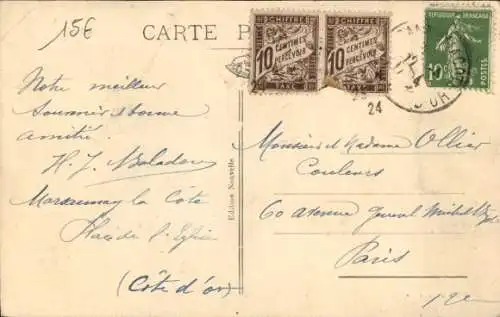 15€
CARTE P
CHIFFRE
10 CENTIMES
À PERCEVOIR
TAXE
CHIFFRE
10 CENTIMES
À PERCEVOIR
TAXE
REPUBLIQUE FRANÇAISE
10c
POSTES
24
D'OR
Notre meilleur
souvenir & bonne
amitié.
H. J.
Marsannay la Côte
Place de l'Eglise
(Côte d'or)
Editions Nouvelle
Monsieur et Madame Ollier
Couleurs
60 avenue General Michel
Paris
12e